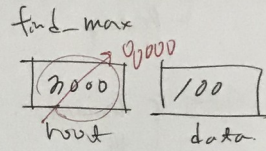 find_max
0,000
3000 100
root data